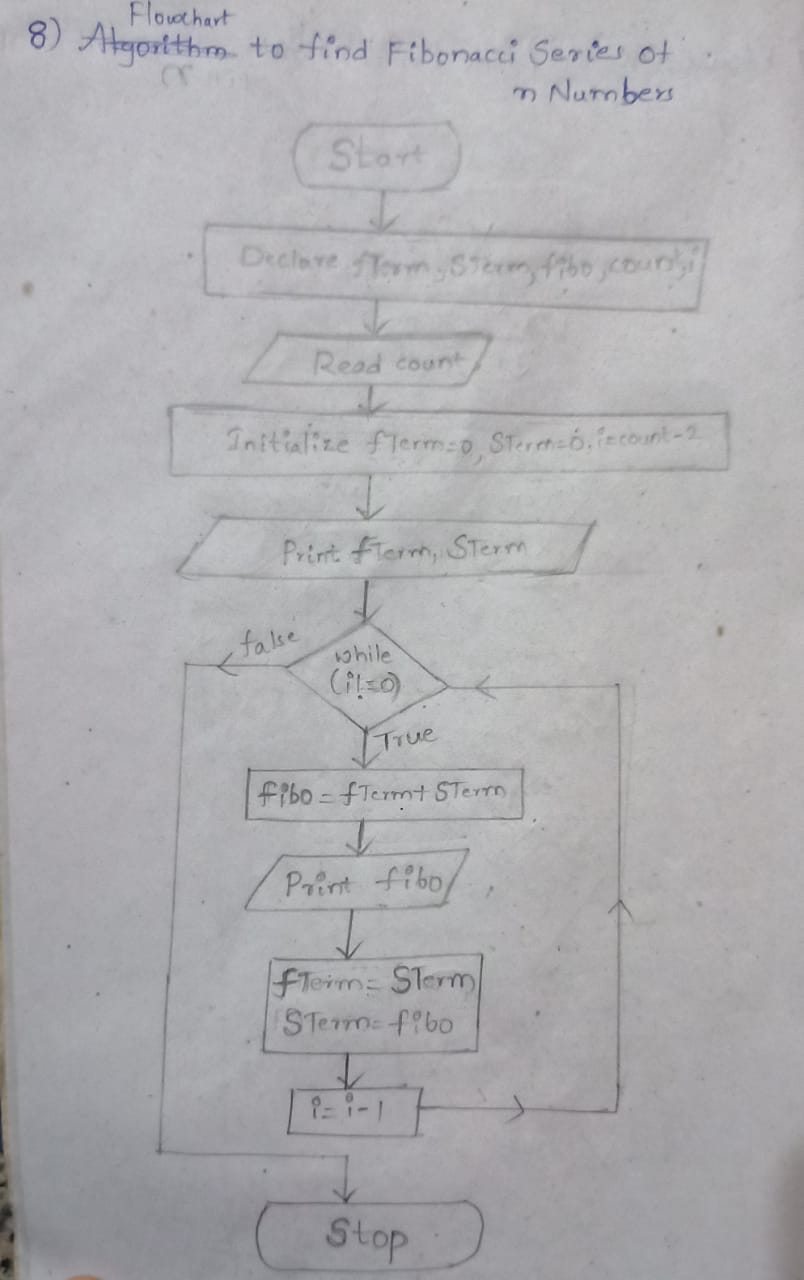 Flowchart
8) Algorithm to find Fibonacci Series of
n Numbers
Start
Declare fTerm, STerm, fibo, count, i
Read count
Initialize fTerm=0, STerm=0, i=count-2
Print fTerm, STerm
false
while
(i!=0)
True
fibo = fTerm+ STerm
Print fibo
fTerm= STerm
STerm= fibo
i= i-1
Stop